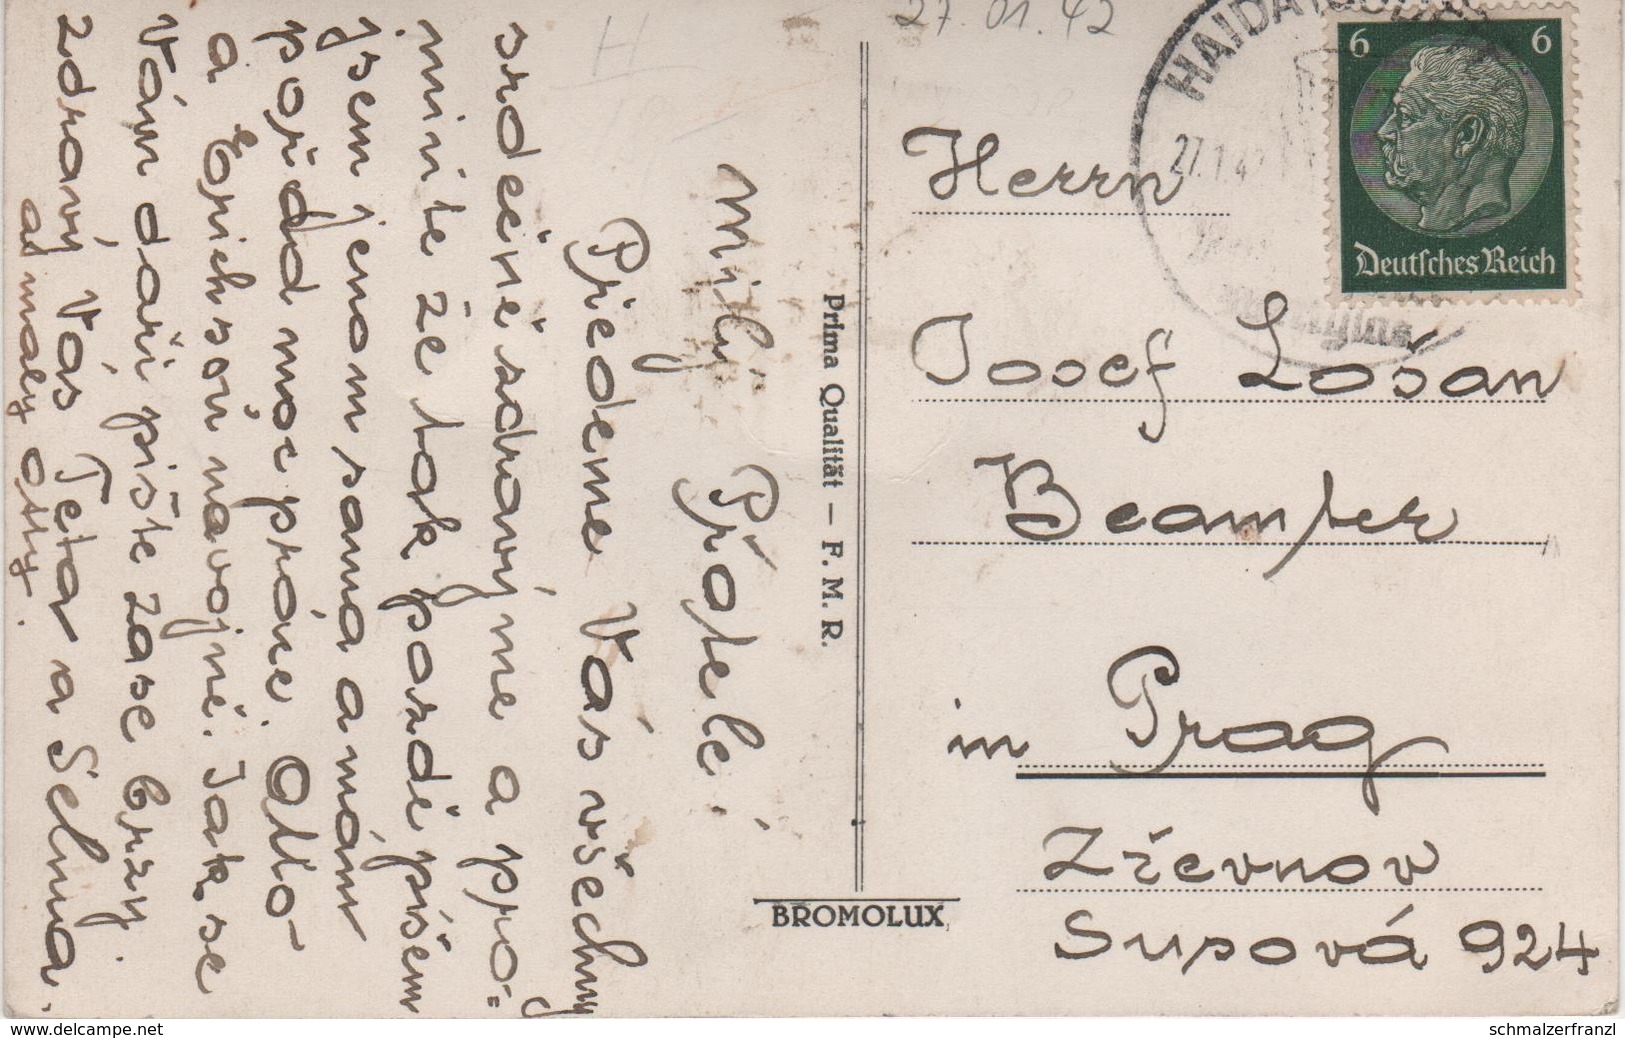 27.01.42
Milý Přátelé.
Přjedeme Vás všechny
srdečně zdravýme a pro=
minite že tak pozdě píšem
jsem jenom sama a mám
pořád moc práce. Otto
a Erich sou na vojně. Jak se
Vám daří pište zase brzy.
zdraví Vás Teta a Selma.
a malý Otty.
Prima Qualität – F. M. R.
BROMOLUX
27.1.42
6 6
Deutsches Reich
Herrn
Josef Lošan
Beamter
in Prag
Zřevnov
Supová 924
www.delcampe.net
schmalzerfranzl